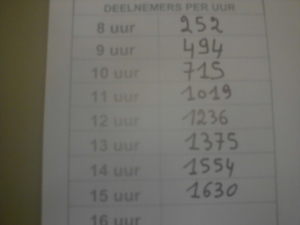 DEELNEMERS PER UUR
8 uur 252
9 uur 494
10 uur 715
11 uur 1019
12 uur 1236
13 uur 1375
14 uur 1554
15 uur 1630
16 uur